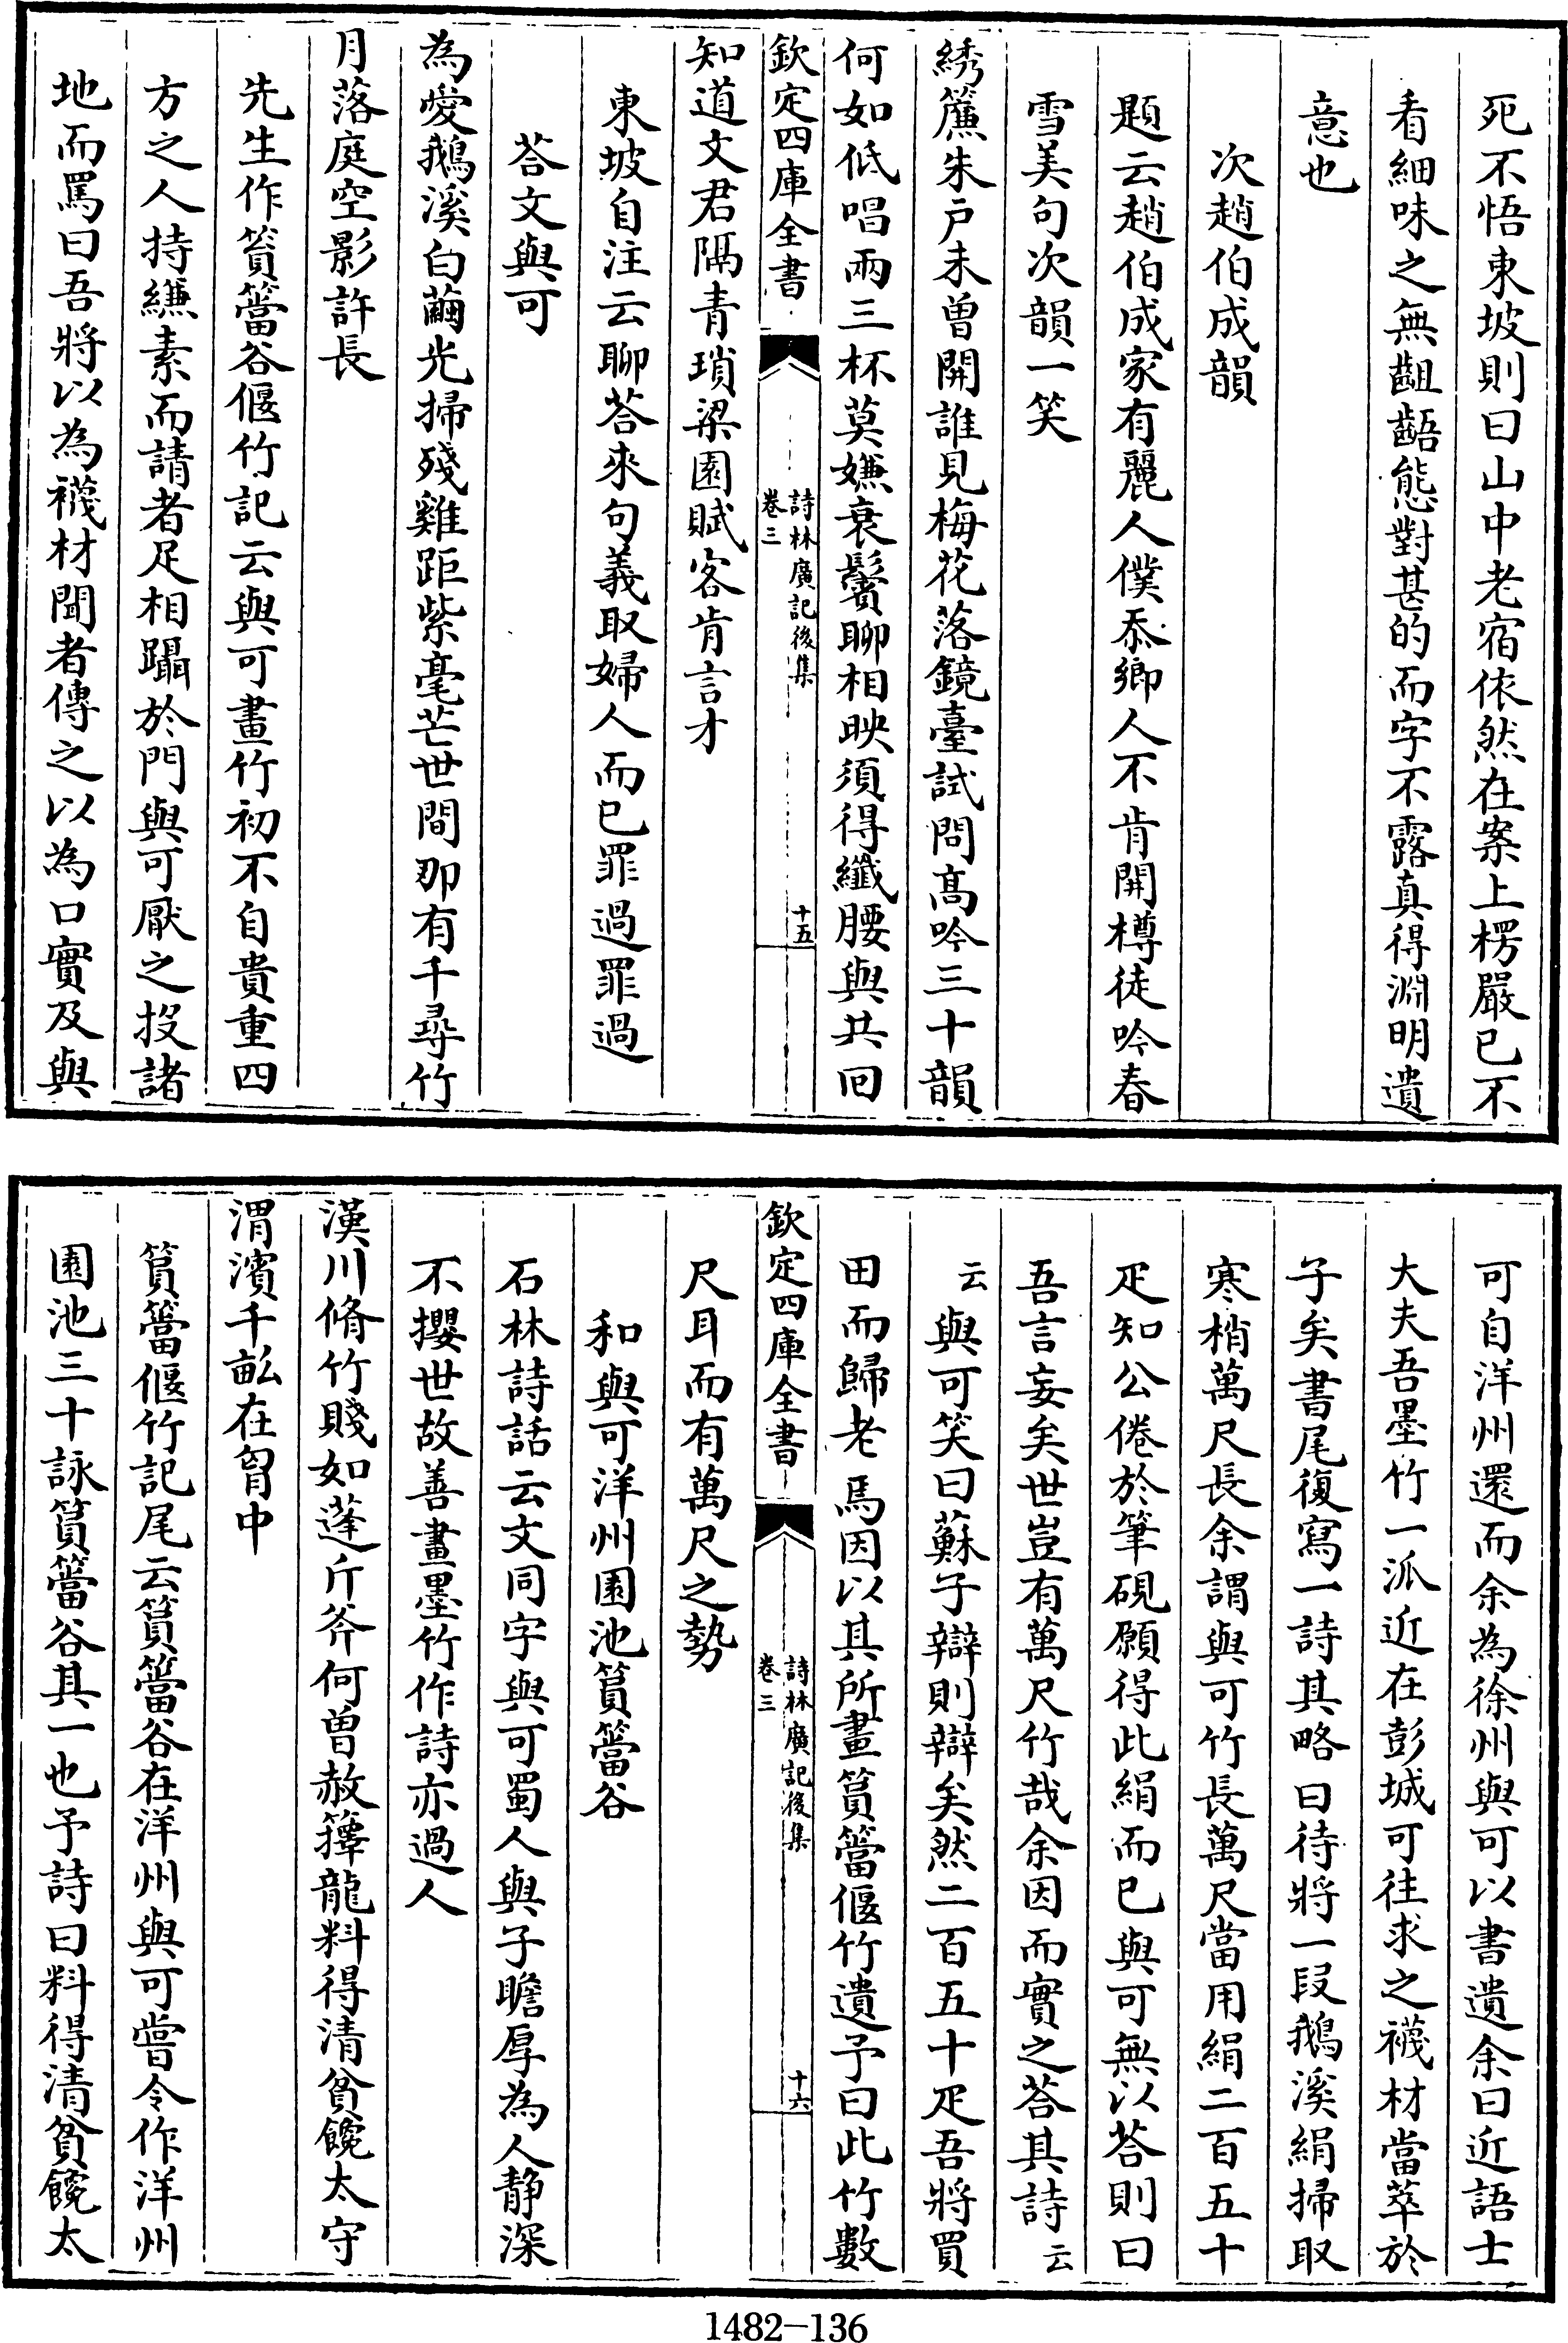 死不悟東坡則曰山中老宿依然在案上楞嚴已不
看細味之無齟齬態對甚的而字不露真得淵明遺
意也
次趙伯成韻
題云趙伯成家有麗人僕忝鄉人不肯開樽徒吟春
雪美句次韻一笑
綉簾朱戶未曽開誰見梅花落鏡臺試問髙吟三十韻
何如低唱兩三杯莫嫌衰鬢聊相映須得纎腰與共回
欽定四庫全書
詩林廣記後集
卷三
十五
知道文君隔青瑣梁園賦客肯言才
東坡自注云聊荅來句義取婦人而已罪過罪過
荅文與可
為愛鵝溪白繭光掃殘雞距紫毫芒世間那有千尋竹
月落庭空影許長
先生作篔簹谷偃竹記云與可畫竹初不自貴重四
方之人持縑素而請者足相躡於門與可厭之投諸
地而罵曰吾將以為襪材聞者傳之以為口實及與
可自洋州還而余為徐州與可以書遺余曰近語士
大夫吾墨竹一派近在彭城可往求之襪材當萃於
子矣書尾復寫一詩其略曰待將一段鵝溪絹掃取
寒梢萬尺長余謂與可竹長萬尺當用絹二百五十
疋知公倦於筆硯願得此絹而已與可無以荅則曰
吾言妄矣世豈有萬尺竹哉余因而實之荅其詩云
云與可笑曰蘇子辯則辯矣然二百五十疋吾將買
田而歸老焉因以其所畫篔簹偃竹遺予曰此竹數
欽定四庫全書
詩林廣記後集
卷三
十六
尺耳而有萬尺之勢
和與可洋州園池篔簹谷
石林詩話云文同字與可蜀人與子瞻厚為人静深
不攖世故善畫墨竹作詩亦過人
漢川脩竹賤如蓬斤斧何曽赦籜龍料得清貧饞太守
渭濱千畝在胷中
篔簹偃竹記尾云篔簹谷在洋州與可嘗令作洋州
園池三十詠篔簹谷其一也予詩曰料得清貧饞太
1482-136